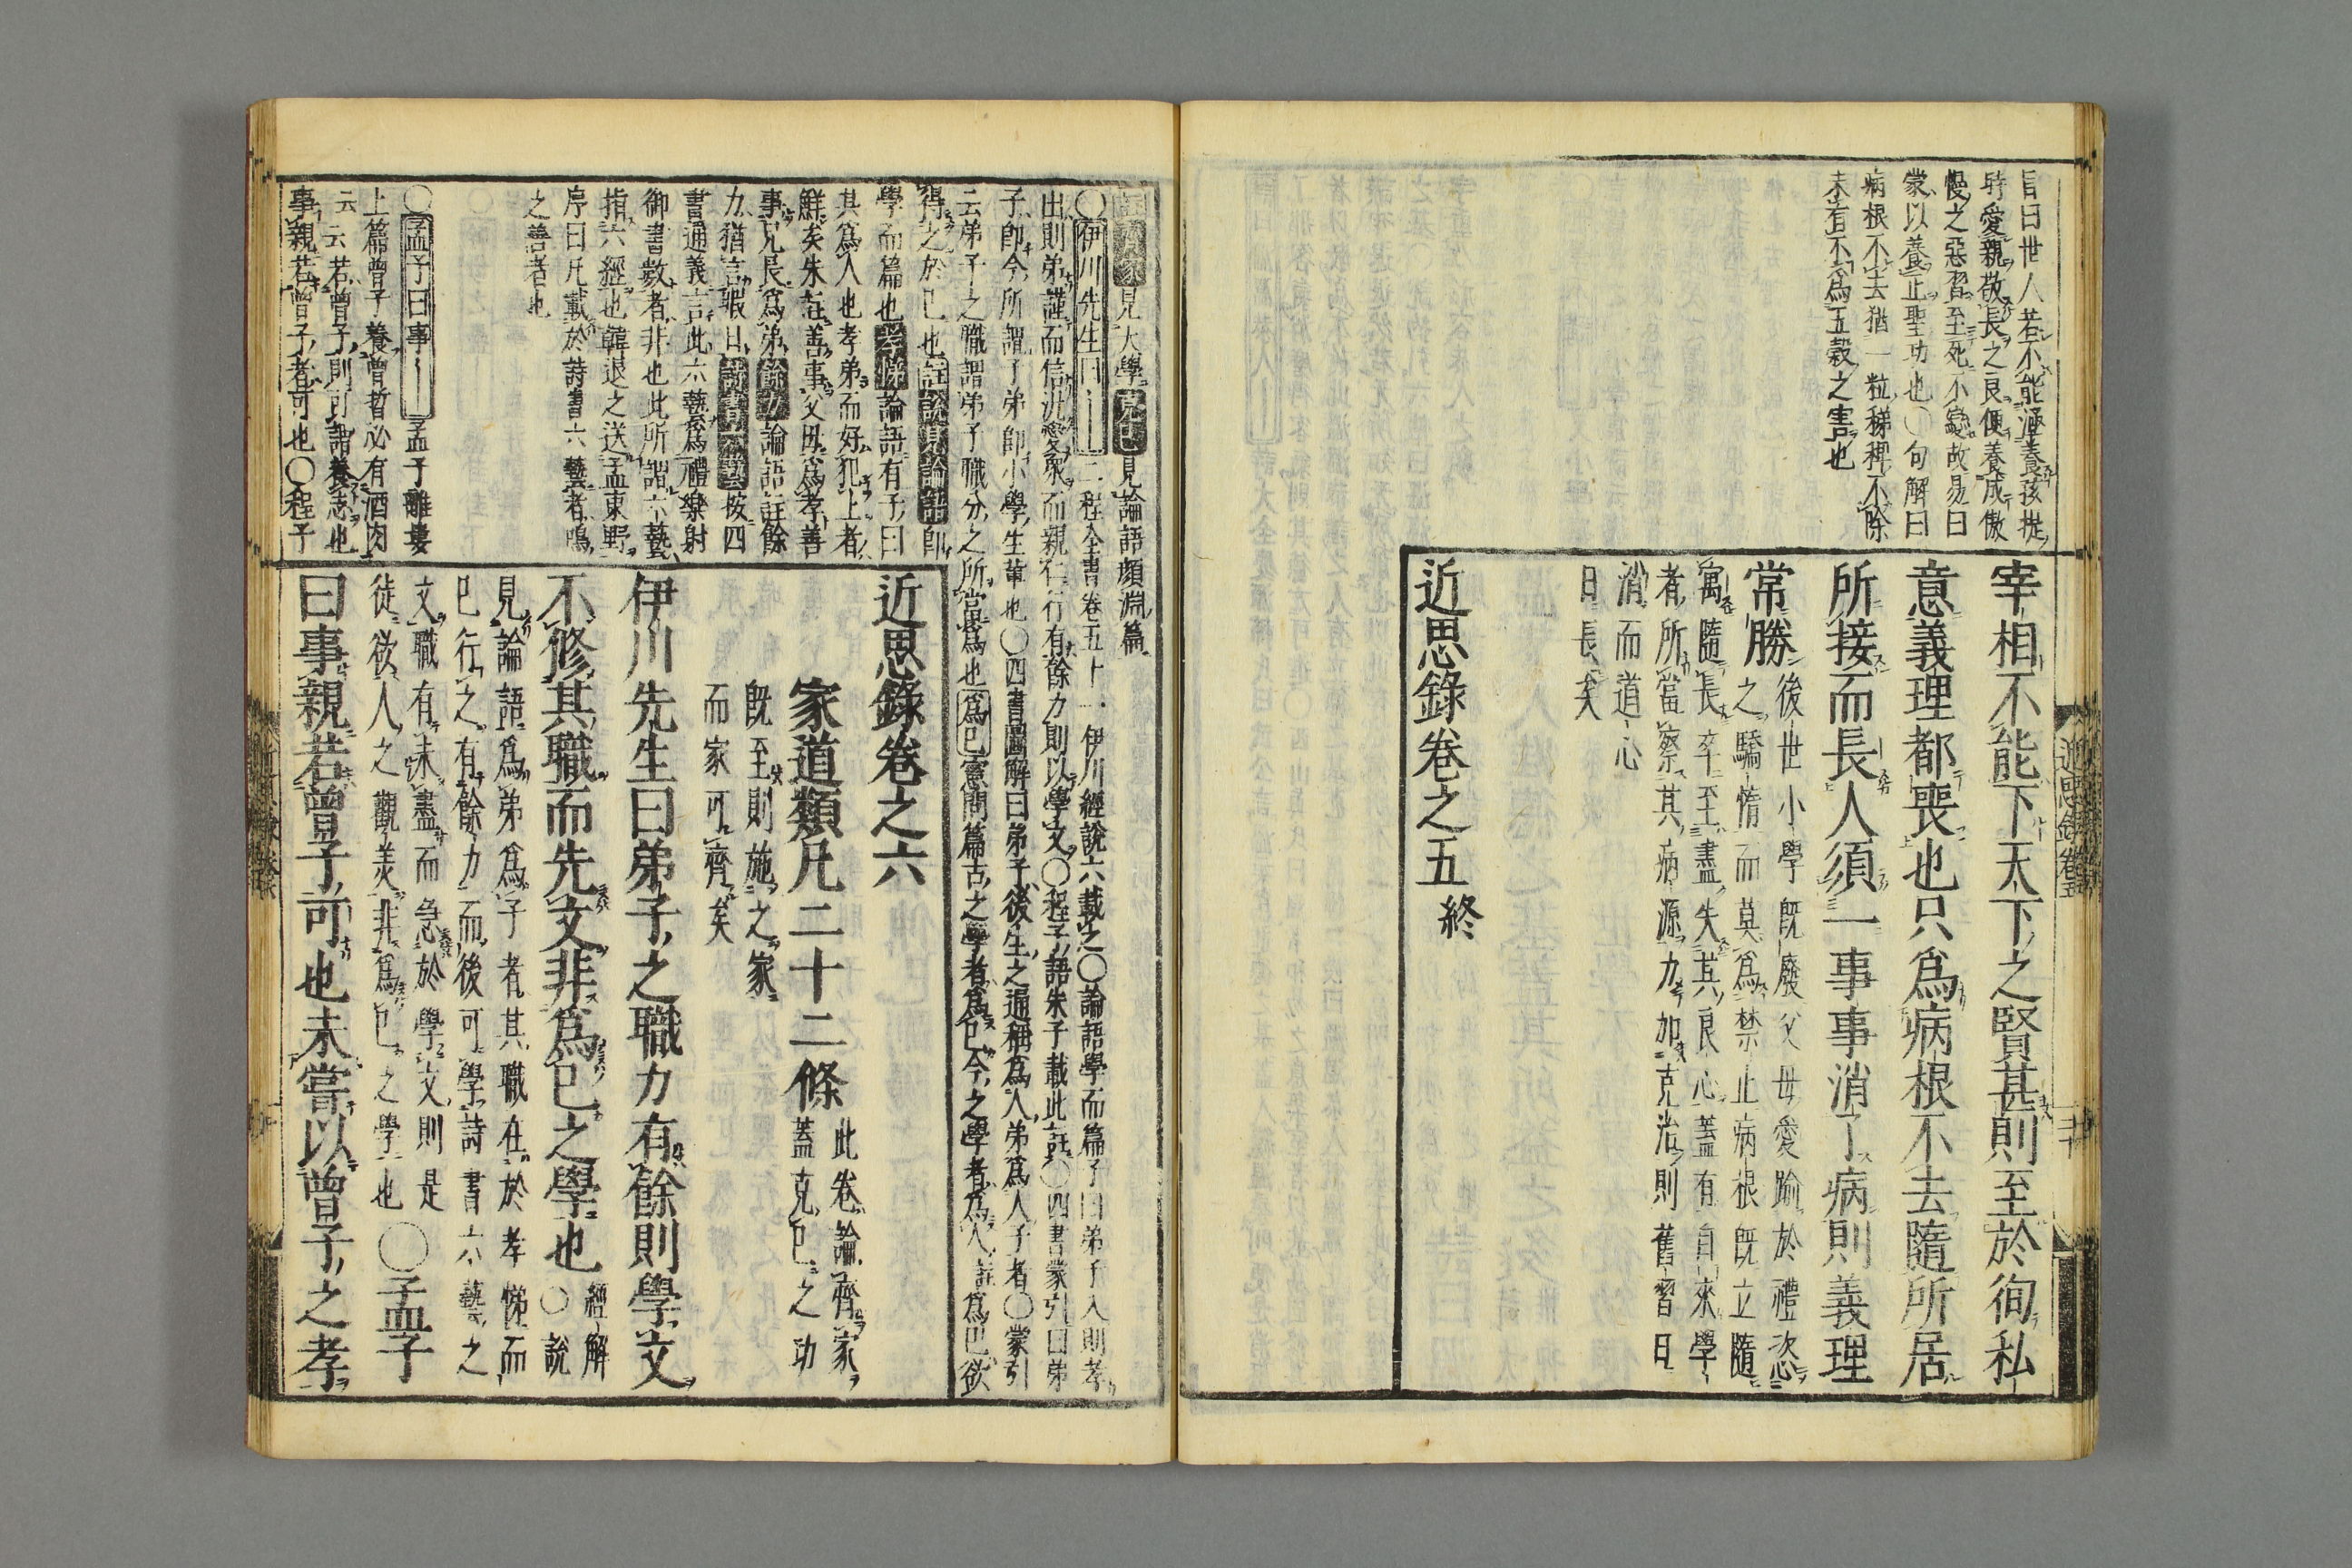 旨曰世人若不能涵養孩提
時愛親敬長之良便養成傲
慢之惡習至死不變故易曰
蒙以養正聖功也○句解曰
病根不去猶一粒稊稗不除
未有不爲五穀之害也
宰相不能下天下之賢甚則至於徇私
意義理都喪也只爲病根不去隨所居
所接而長人須一事事消了病則義理
常勝
後世小學既廢父母愛踰於禮恣
之驕惰而莫爲禁止病根既立隨
寓隨長卒至盡失其良心蓋有自來學
者所當察其病源力加克治則舊習日
消而道心
日長矣
近思錄卷之五 終
近思錄 卷五
見大學 克己 見論語顔淵篇
○伊川先生曰 二程全書卷五十一伊川經說六載之○論語學而篇子曰弟子入則孝
出則弟謹而信汎愛衆而親仁行有餘力則以學文○程子語朱子載此註○四書蒙引曰弟
子卽今所謂子弟卽小學生輩也○四書圖解曰弟子後生之通稱爲人弟爲人子者○蒙引
云弟子之職謂弟子職分之所當爲也 爲己 憲問篇古之學者爲己今之學者爲人註爲己欲
得之於己也 註說見論語 卽
學而篇也 孝悌 論語有子曰
其爲人也孝弟而好犯上者
鮮矣朱註善事父母爲孝善
事兄長爲弟 餘力 論語註餘
力猶言暇日 詩書六藝 按四
書通義言此六藝爲禮樂射
御書數者非也此所謂六藝
指六經也韓退之送孟東野
序曰凡載於詩書六藝者鳴
之善者也
○孟子曰事 孟子離婁
上篇曾子養曾晳必有酒肉
云云若曾子則可謂養志也
事親若曾子者可也○程子
近思錄卷之六
家道類凡二十二條
此卷論齊家
蓋克己之功
既至則施之家
而家可齊矣
伊川先生曰弟子之職力有餘則學文
不修其職而先文非爲己之學也
經解
○說
見論語爲弟爲子者其職在於孝悌而
已行之有餘力而後可學詩書六藝之
文職有未盡而急於學文則是
徒欲人之觀美非爲己之學也
○孟子
曰事親若曾子可也未嘗以曾子之孝